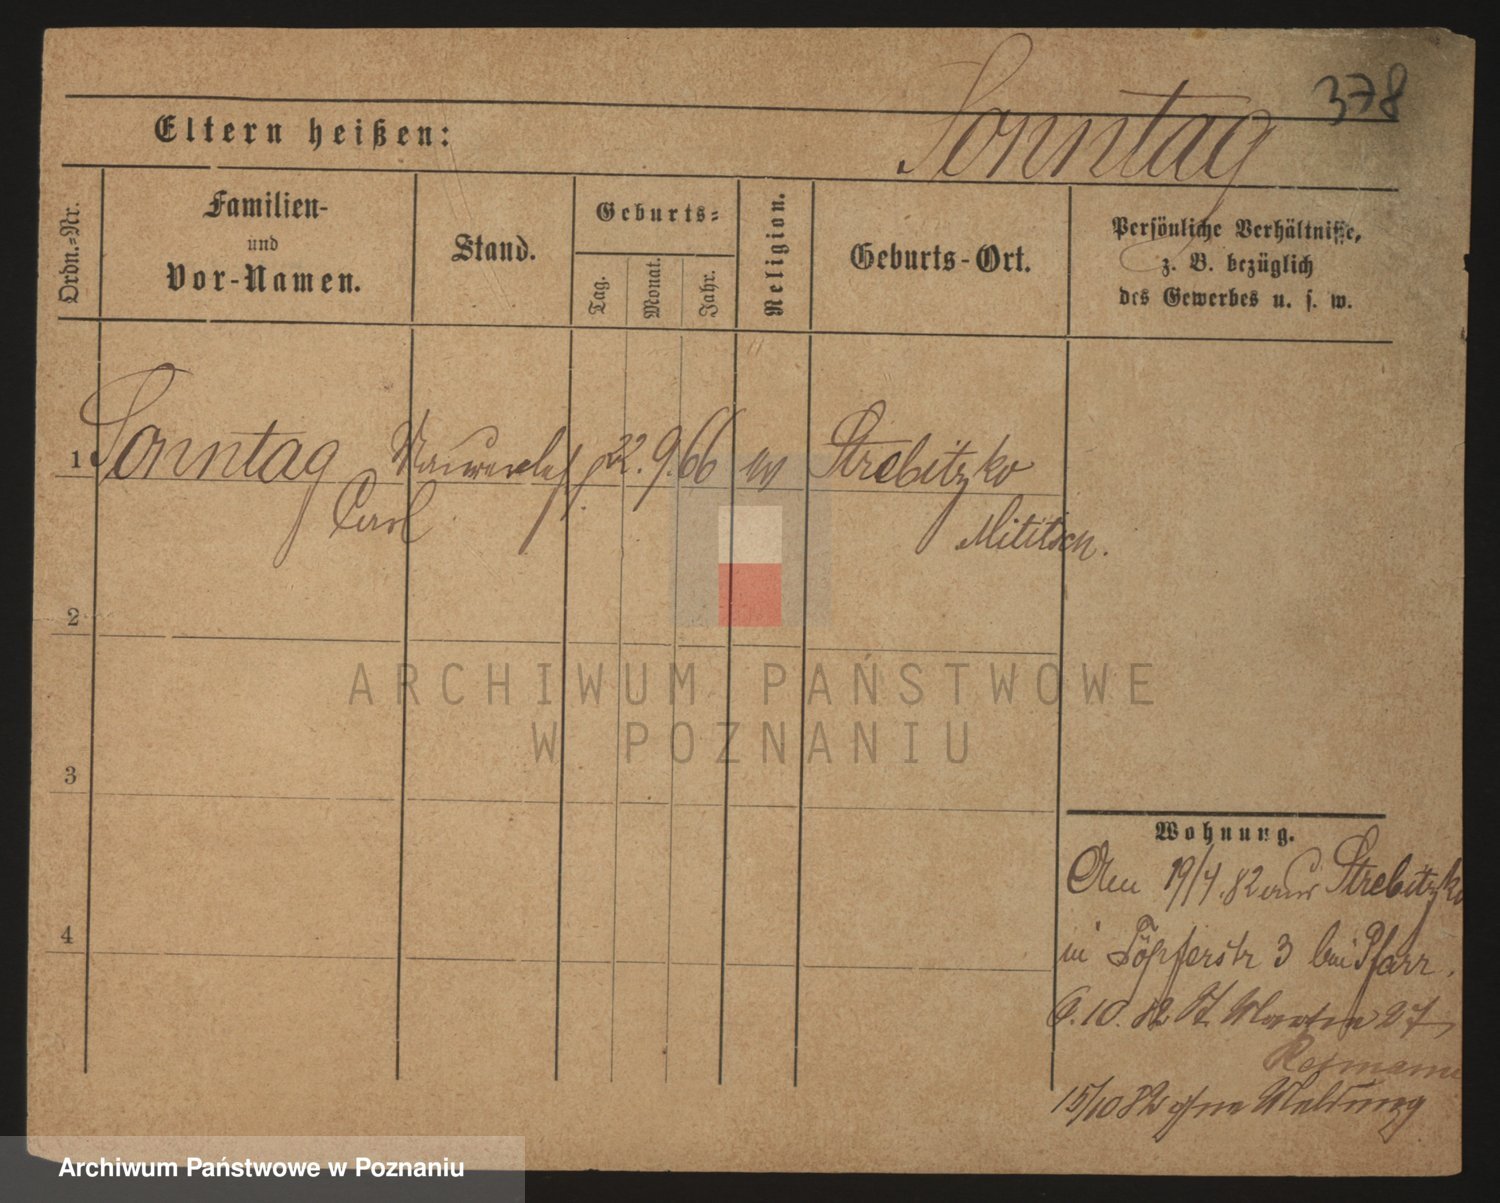 378
Sonntag
Eltern heißen:
Ordn.-Nr.
Familien-
und
Vor-Namen.
Stand.
Geburts-
Tag.
Monat.
Jahr.
Religion.
Geburts-Ort.
Persönliche Verhältnisse,
z. B. bezüglich
des Gewerbes u. s. w.
1 Sonntag 22. 9. 66 ev Strebitzko
Carl Militsch.
2
3
4
Wohnung.
Am 19/4. 82 aus Strebitzko
in Töpferstr 3 bei Pfarr.
6. 10. 82 St Martin 27
15/10 82 ohne Meldung
ARCHIWUM PAŃSTWOWE
W POZNANIU
Archiwum Państwowe w Poznaniu